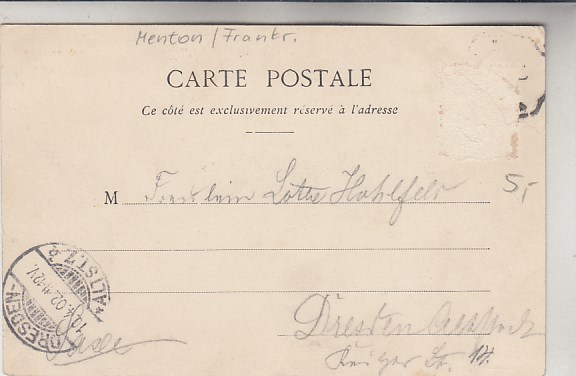 Menton / Frankr.
CARTE POSTALE
Ce côté est exclusivement réservé à l'adresse
5,-
M Fräulein Lotte Hohlfeld
DRESDEN-ALTST. 7. e.
10.4.02. 11-12V.
Dresden Altstadt
Str. 14.